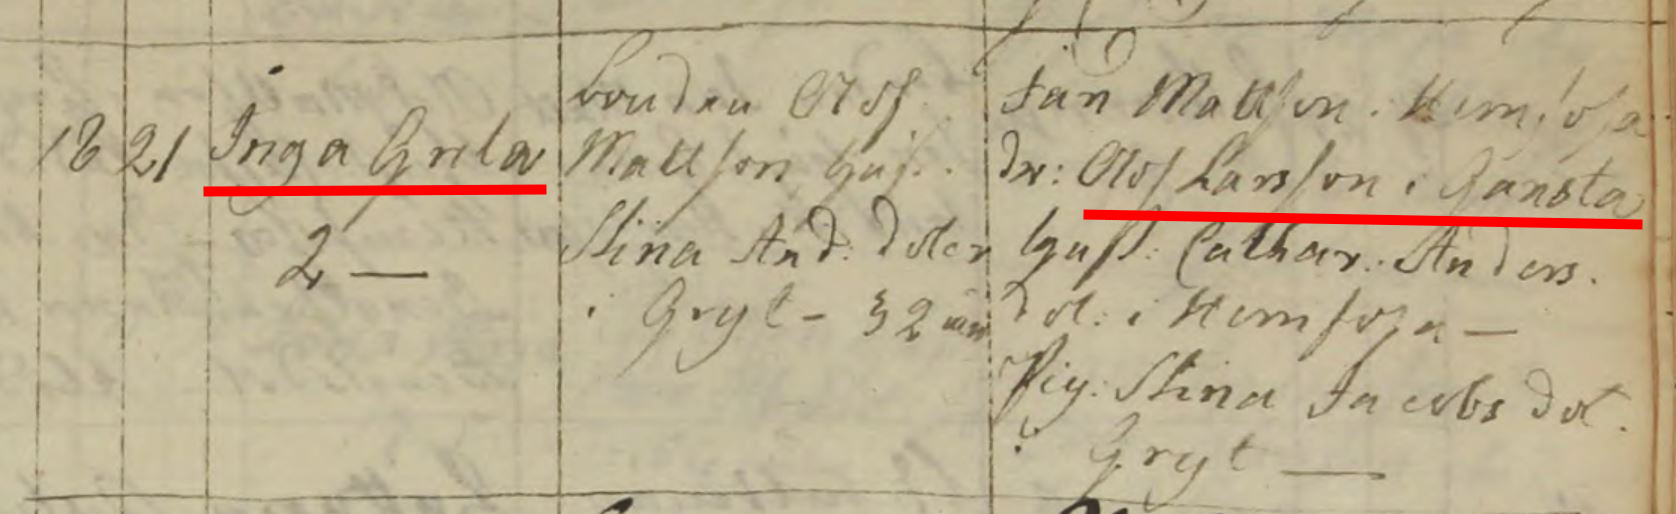 18 21 Inga Greta
2 —
bonden Olof
Mattsson hust.
Stina And: doter
i Gryt - 32 åar
Jan Mattsson i Hemfosa
dr: Olof Larsson i Gansta
hust: Cathar. Anders
dot: i Hemfosa —
Pig: Stina Jacobs dot.
i Gryt —